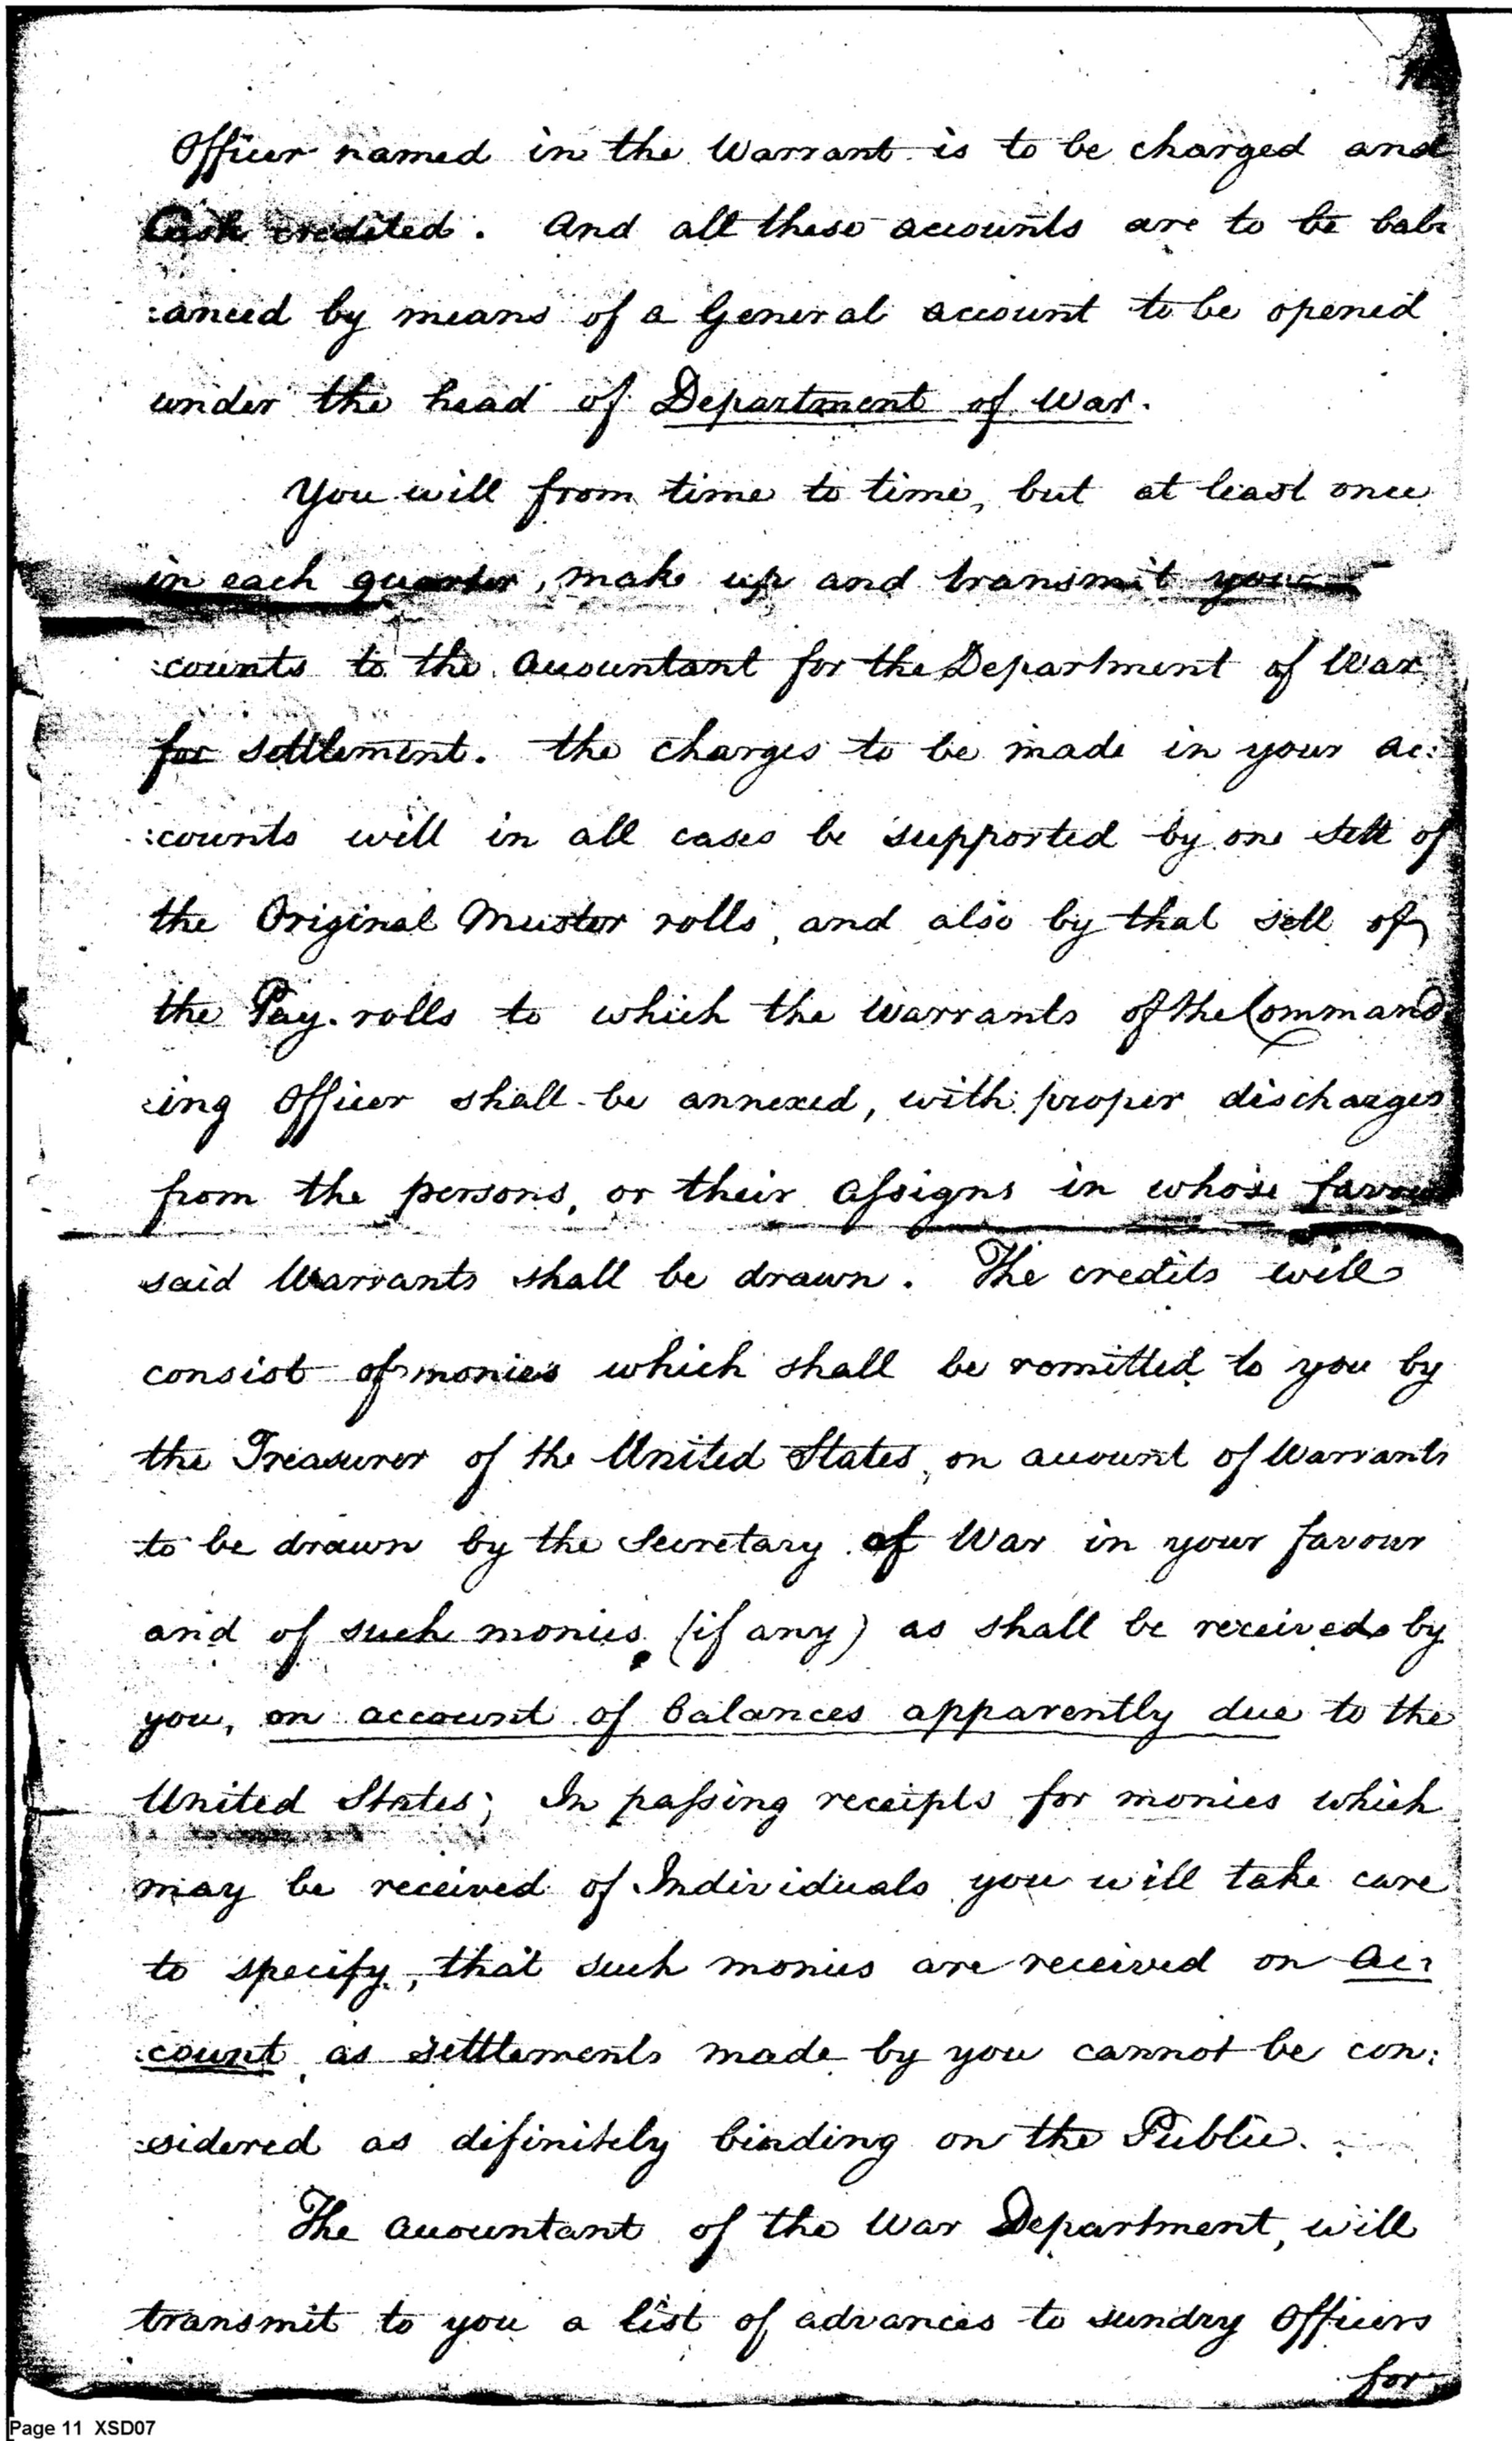 Officer named in the Warrant is to be charged and
Cash credited. And all these accounts are to be bal:
:anced by means of a General account to be opened
under the head of Department of War.
You will from time to time, but at least once
in each quarter, make up and transmit your
:counts to the Accountant for the Department of War
for settlement. the charges to be made in your ac:
:counts will in all cases be supported by one sett of
the Original Muster rolls, and also by that sett of
the Pay-rolls to which the Warrants of the Command
:ing Officer shall be annexed, with proper discharges
from the persons, or their assigns in whose favour
said Warrants shall be drawn. The credits will
consist of monies which shall be remitted to you by
the Treasurer of the United States, on account of Warrants
to be drawn by the Secretary of War in your favour
and of such monies (if any) as shall be received by
you, on account of balances apparently due to the
United States; In passing receipts for monies which
may be received of Individuals you will take care
to specify, that such monies are received on ac:
:count, as settlements made by you cannot be con:
:sidered as difinitely binding on the Public.
The Accountant of the War Department, will
transmit to you a list of advances to sundry Officers
for
Page 11 XSD07